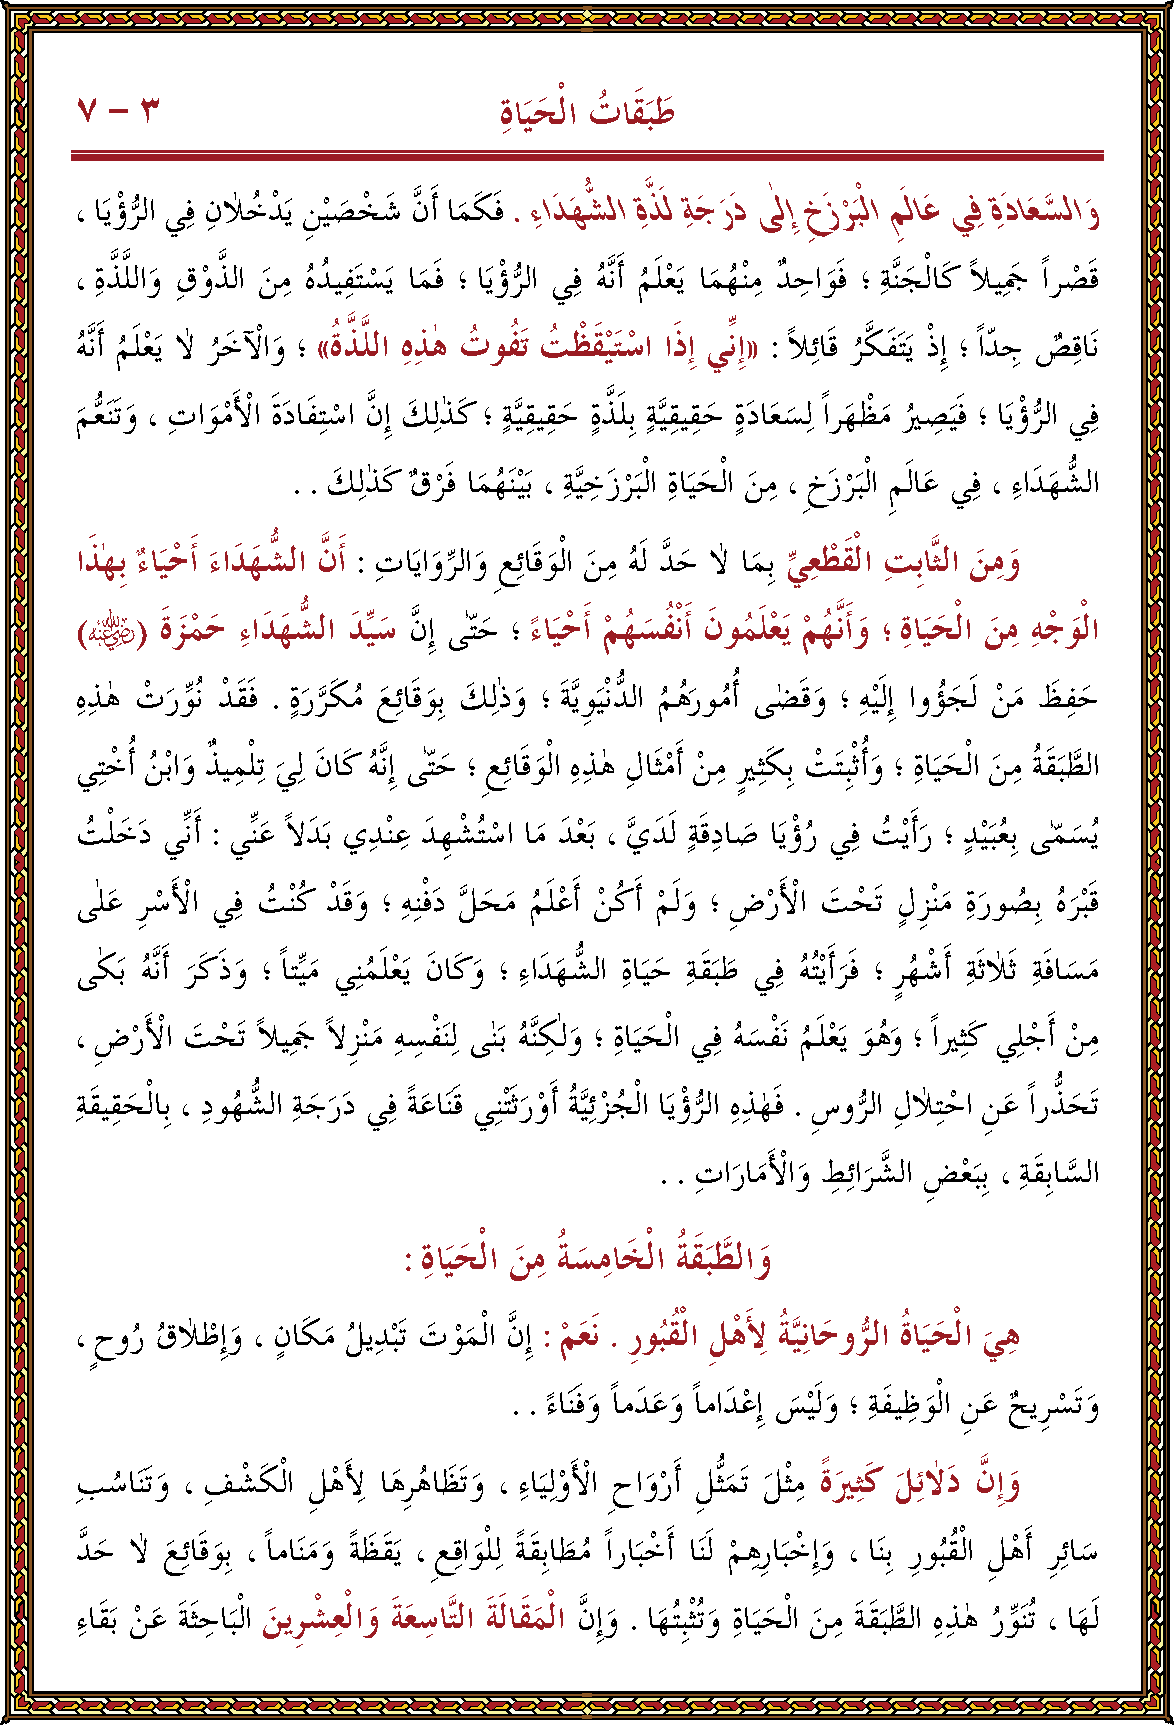 طَبَقَاتُ الْحَيَاةِ
٣ – ٧
وَالسَّعَادَةِ فِي عَالَمِ الْبَرْزَخِ إِلٰى دَرَجَةِ لَذَّةِ الشُّهَدَاءِ . فَكَمَا أَنَّ شَخْصَيْنِ يَدْخُلاٰنِ فِي الرُّؤْيَا ،
قَصْراً جَمِيلاً كَالْجَنَّةِ ؛ فَوَاحِدٌ مِنْهُمَا يَعْلَمُ أَنَّهُ فِي الرُّؤْيَا ؛ فَمَا يَسْتَفِيدُهُ مِنَ الذَّوْقِ وَاللَّذَّةِ ،
نَاقِصٌ جِدّاً ؛ إِذْ يَتَفَكَّرُ قَائِلاً : «إِنِّي إِذَا اسْتَيْقَظْتُ تَفُوتُ هٰذِهِ اللَّذَّةُ» ؛ وَالْآخَرُ لاٰ يَعْلَمُ أَنَّهُ
فِي الرُّؤْيَا ؛ فَيَصِيرُ مَظْهَراً لِسَعَادَةٍ حَقِيقِيَّةٍ بِلَذَّةٍ حَقِيقِيَّةٍ ؛ كَذٰلِكَ إِنَّ اسْتِفَادَةَ الْأَمْوَاتِ ، وَتَنَعُّمَ
الشُّهَدَاءِ ، فِي عَالَمِ الْبَرْزَخِ ، مِنَ الْحَيَاةِ الْبَرْزَخِيَّةِ ، بَيْنَهُمَا فَرْقٌ كَذٰلِكَ . .
وَمِنَ الثَّابِتِ الْقَطْعِيِّ بِمَا لاٰ حَدَّ لَهُ مِنَ الْوَقَائِعِ وَالرِّوَايَاتِ : أَنَّ الشُّهَدَاءَ أَحْيَاءٌ بِهٰذَا
الْوَجْهِ مِنَ الْحَيَاةِ ؛ وَأَنَّهُمْ يَعْلَمُونَ أَنْفُسَهُمْ أَحْيَاءً ؛ حَتّٰى إِنَّ سَيِّدَ الشُّهَدَاءِ حَمْزَةَ (رضي الله عنه)
حَفِظَ مَنْ لَجَؤُوا إِلَيْهِ ؛ وَقَضٰى أُمُورَهُمُ الدُّنْيَوِيَّةَ ؛ وَذٰلِكَ بِوَقَائِعَ مُكَرَّرَةٍ . فَقَدْ نُوِّرَتْ هٰذِهِ
الطَّبَقَةُ مِنَ الْحَيَاةِ ؛ وَأُثْبِتَتْ بِكَثِيرٍ مِنْ أَمْثَالِ هٰذِهِ الْوَقَائِعِ ؛ حَتّٰى إِنَّهُ كَانَ لِيَ تِلْمِيذٌ وَابْنُ أُخْتِي
يُسَمّٰى بِعُبَيْدٍ ؛ رَأَيْتُ فِي رُؤْيَا صَادِقَةٍ لَدَيَّ ، بَعْدَ مَا اسْتُشْهِدَ عِنْدِي بَدَلاً عَنِّي : أَنِّي دَخَلْتُ
قَبْرَهُ بِصُورَةِ مَنْزِلٍ تَحْتَ الْأَرْضِ ؛ وَلَمْ أَكُنْ أَعْلَمُ مَحَلَّ دَفْنِهِ ؛ وَقَدْ كُنْتُ فِي الْأَسْرِ عَلٰى
مَسَافَةِ ثَلاٰثَةِ أَشْهُرٍ ؛ فَرَأَيْتُهُ فِي طَبَقَةِ حَيَاةِ الشُّهَدَاءِ ؛ وَكَانَ يَعْلَمُنِي مَيِّتاً ؛ وَذَكَرَ أَنَّهُ بَكٰى
مِنْ أَجْلِي كَثِيراً ؛ وَهُوَ يَعْلَمُ نَفْسَهُ فِي الْحَيَاةِ ؛ وَلٰكِنَّهُ بَنٰى لِنَفْسِهِ مَنْزِلاً جَمِيلاً تَحْتَ الْأَرْضِ ،
تَحَذُّراً عَنِ احْتِلاٰلِ الرُّوسِ . فَهٰذِهِ الرُّؤْيَا الْجُزْئِيَّةُ أَوْرَثَتْنِي قَنَاعَةً فِي دَرَجَةِ الشُّهُودِ ، بِالْحَقِيقَةِ
السَّابِقَةِ ، بِبَعْضِ الشَّرَائِطِ وَالْأَمَارَاتِ . .
وَالطَّبَقَةُ الْخَامِسَةُ مِنَ الْحَيَاةِ :
هِيَ الْحَيَاةُ الرُّوحَانِيَّةُ لِأَهْلِ الْقُبُورِ . نَعَمْ : إِنَّ الْمَوْتَ تَبْدِيلُ مَكَانٍ ، وَإِطْلاٰقُ رُوحٍ ،
وَتَسْرِيحٌ عَنِ الْوَظِيفَةِ ؛ وَلَيْسَ إِعْدَاماً وَعَدَماً وَفَنَاءً . .
وَإِنَّ دَلاٰئِلَ كَثِيرَةً مِثْلَ تَمَثُّلِ أَرْوَاحِ الْأَوْلِيَاءِ ، وَتَظَاهُرِهَا لِأَهْلِ الْكَشْفِ ، وَتَنَاسُبِ
سَائِرِ أَهْلِ الْقُبُورِ بِنَا ، وَإِخْبَارِهِمْ لَنَا أَخْبَاراً مُطَابِقَةً لِلْوَاقِعِ ، يَقَظَةً وَمَنَاماً ، بِوَقَائِعَ لاٰ حَدَّ
لَهَا ، تُنَوِّرُ هٰذِهِ الطَّبَقَةَ مِنَ الْحَيَاةِ وَتُثْبِتُهَا . وَإِنَّ الْمَقَالَةَ التَّاسِعَةَ وَالْعِشْرِينَ الْبَاحِثَةَ عَنْ بَقَاءِ